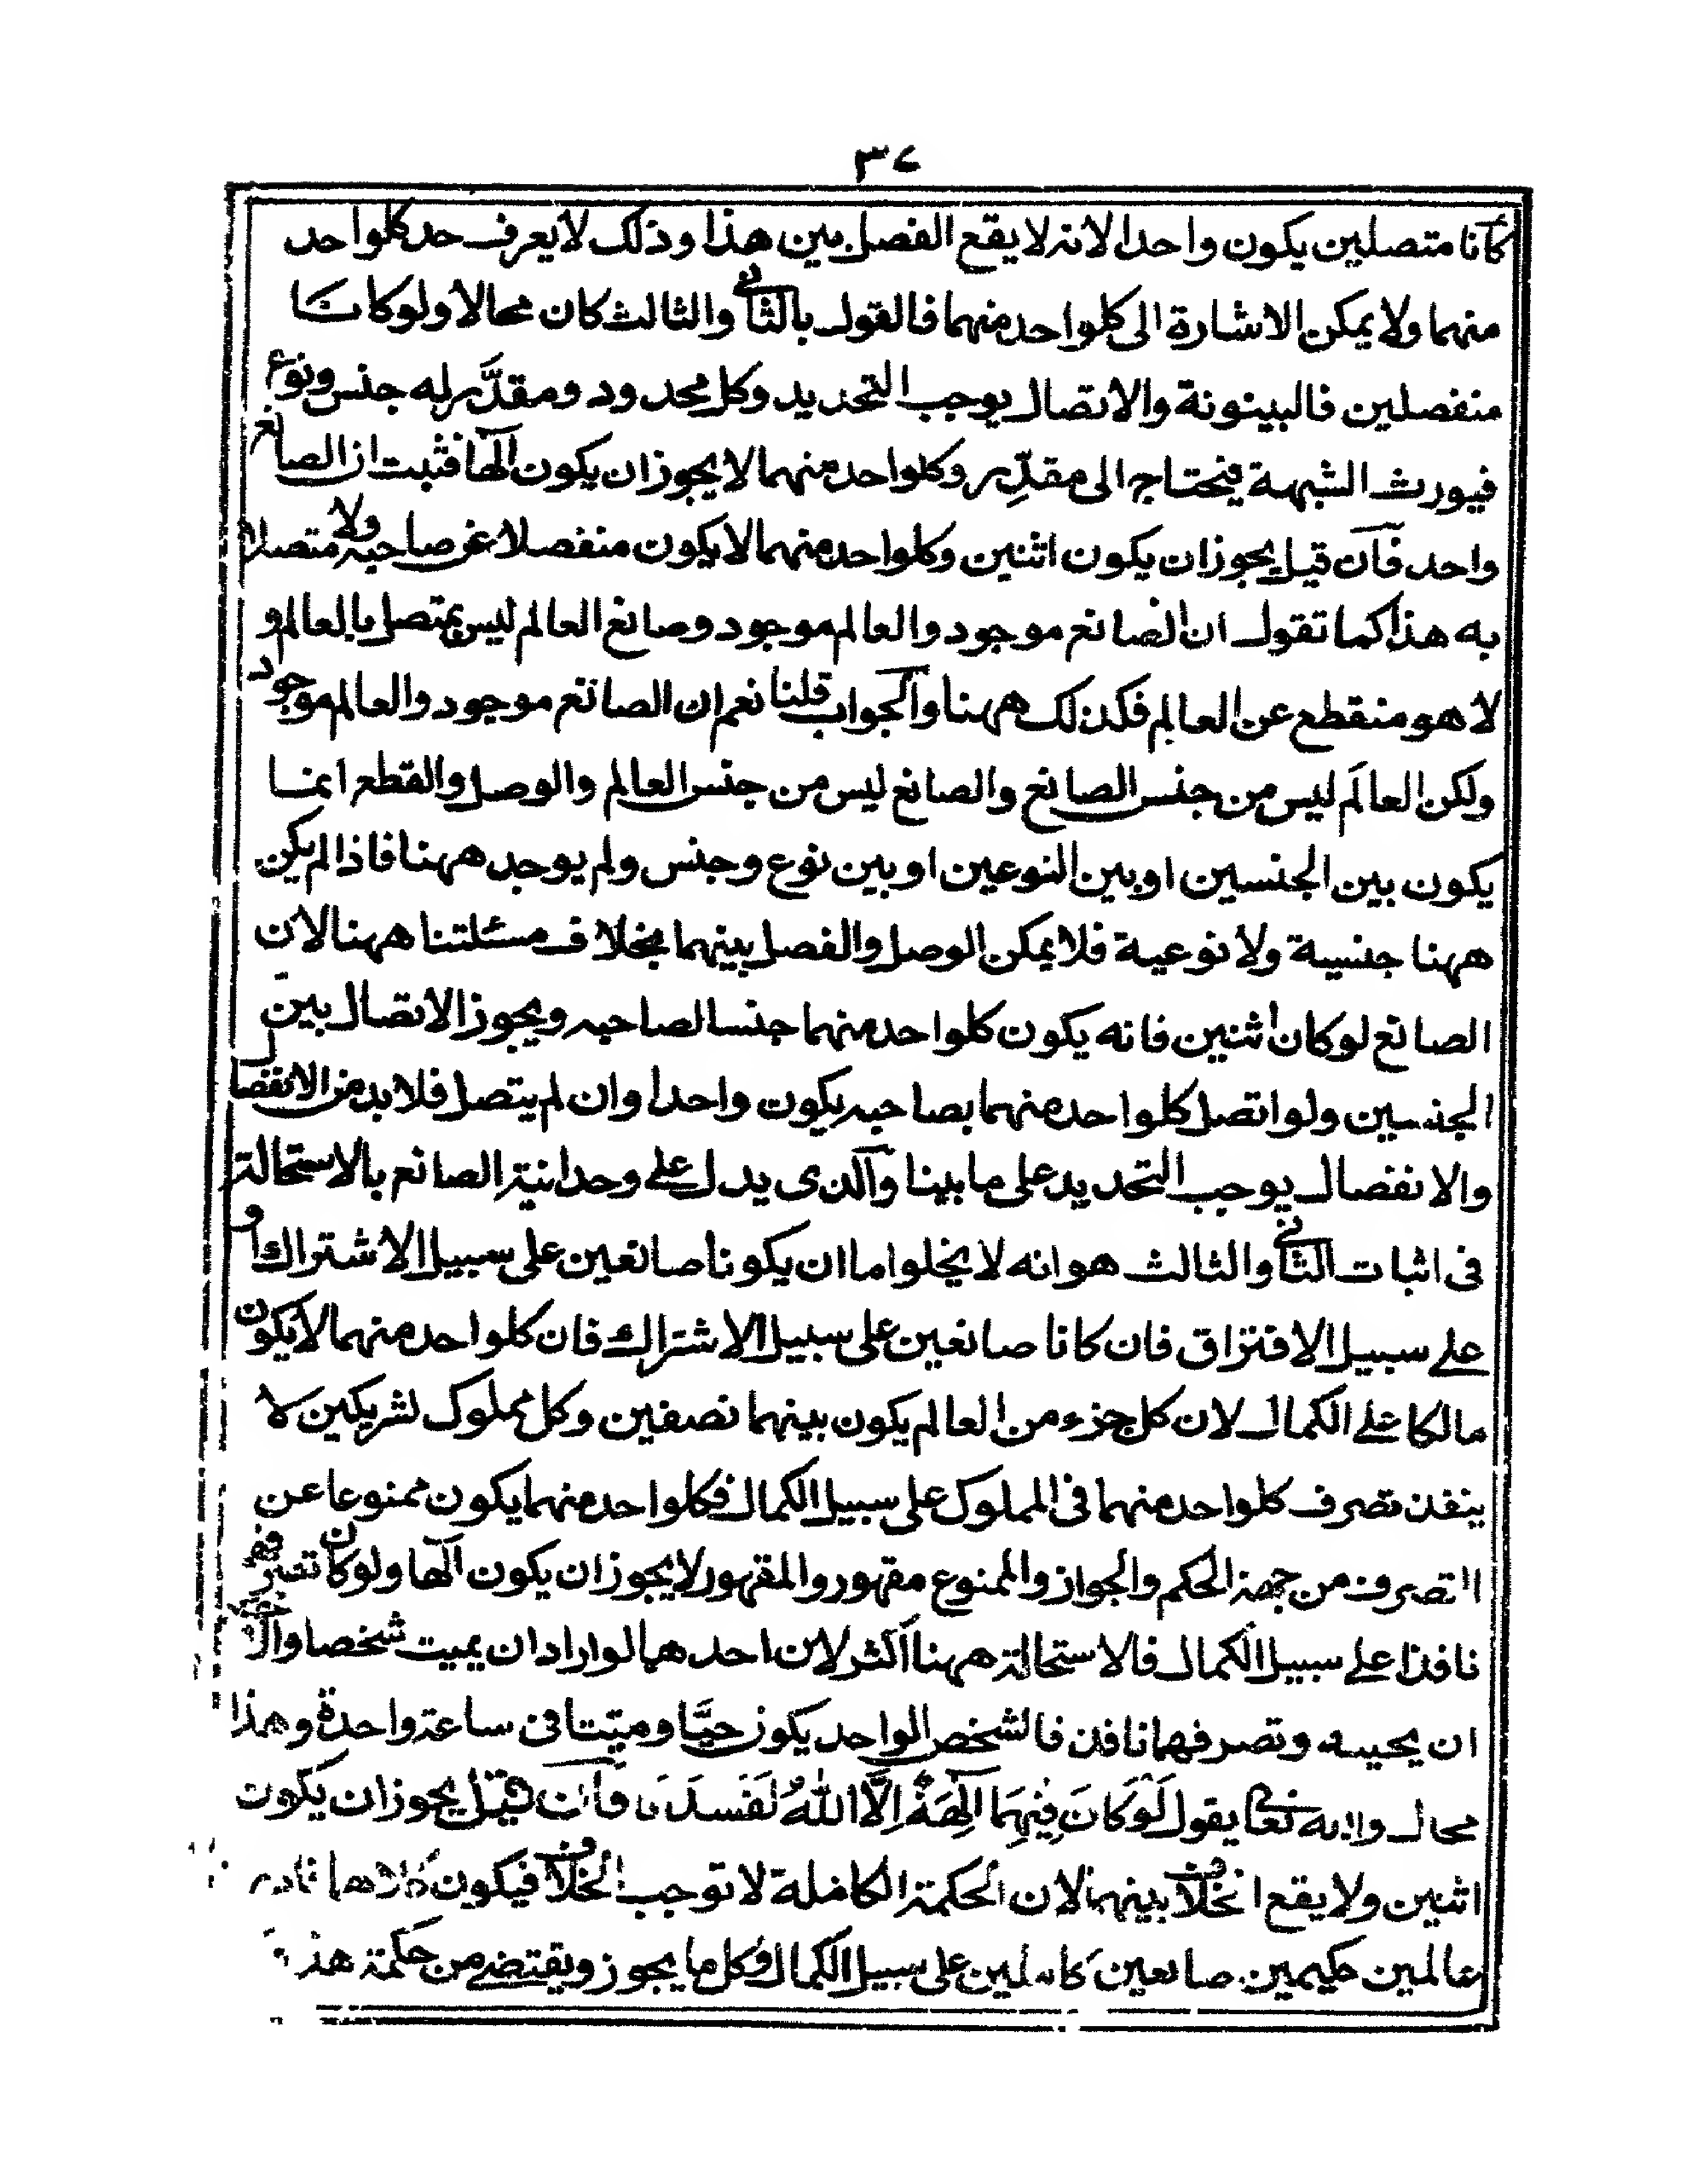 ٣٧
كانا متصلين يكون واحدا لانه لا يقع الفصل بين هذا وذلك لا يعرف حد كلواحد
منهما ولا يمكن الاشارة الى كلواحد منهما فالقول بالثانى والثالث كان محالا ولو كانا
منفصلين فالبينونة والاتصال يوجب التحديد وكل محدود ومقدَّر له جنس ونوع
فيورث الشبهة فيحتاج الى مقدِّر وكلواحد منهما لا يجوز ان يكون آلها فثبت ان الصانع
واحد فان قيل يجوز ان يكون اثنين وكلواحد منهما لا يكون منفصلا عن صاحبه ولا متصلا
به هذا كما تقول ان الصانع موجود والعالم موجود وصانع العالم ليس بمتصل بالعالم و
لا هو منقطع عن العالم فكذلك ههنا والجواب قلنا نعم ان الصانع موجود والعالم موجود
ولكن العالَم ليس من جنس الصانع والصانع ليس من جنس العالم والوصل والقطع انما
يكون بين الجنسين او بين النوعين او بين نوع وجنس ولم يوجد ههنا فاذا لم يكن
ههنا جنسية ولا نوعية فلا يمكن الوصل والفصل بينهما بخلاف مسئلتنا ههنا لان
الصانع لو كان اثنين فانه يكون كلواحد منهما جنسا لصاحبه ويجوز الاتصال بين
الجنسين ولو اتصل كلواحد منهما بصاحبه يكون واحدا وان لم يتصل فلا بد من الانفصال
والانفصال يوجب التحديد على ما بينا والذى يدل على وحدانية الصانع بالاستحالة
فى اثبات الثانى والثالث هو انه لا يخلوا اما ان يكونا صانعين على سبيل الاشتراك او
على سبيل الافتراق فان كانا صانعين على سبيل الاشتراك فان كلواحد منهما لا يكون
مالكا على الكمال لان كل جزء من العالم يكون بينهما نصفين وكل مملوك لشريكين لا
ينفذ تصرف كلواحد منهما فى المملوك على سبيل الكمال فكلواحد منهما يكون ممنوعا عن
التصرف من جهة الحكم والجواز والممنوع مقهور والمقهور لا يجوز ان يكون آلها ولو كان تصرفهما
نافذا على سبيل الكمال فالاستحالة ههنا اكثر لان احدهما لو اراد ان يميت شخصا والآخر
ان يحييه وتصرفهما نافذ فالشخص الواحد يكون حيًّا وميّتا فى ساعة واحدة وهذا
محال والله تعالى يقول لَوْ كَانَ فِيْهِمَا آلِهَةٌ اِلَّا اللّٰهُ لَفَسَدَتَا فان قيل يجوز ان يكون
اثنين ولا يقع الخلاف بينهما لان الحكمة الكاملة لا توجب الخلاف فيكون كلاهما قادرين
عالمين حكيمين صانعين كاملين على سبيل الكمال وكل ما يجوز ويقتضى من حكمة هذا